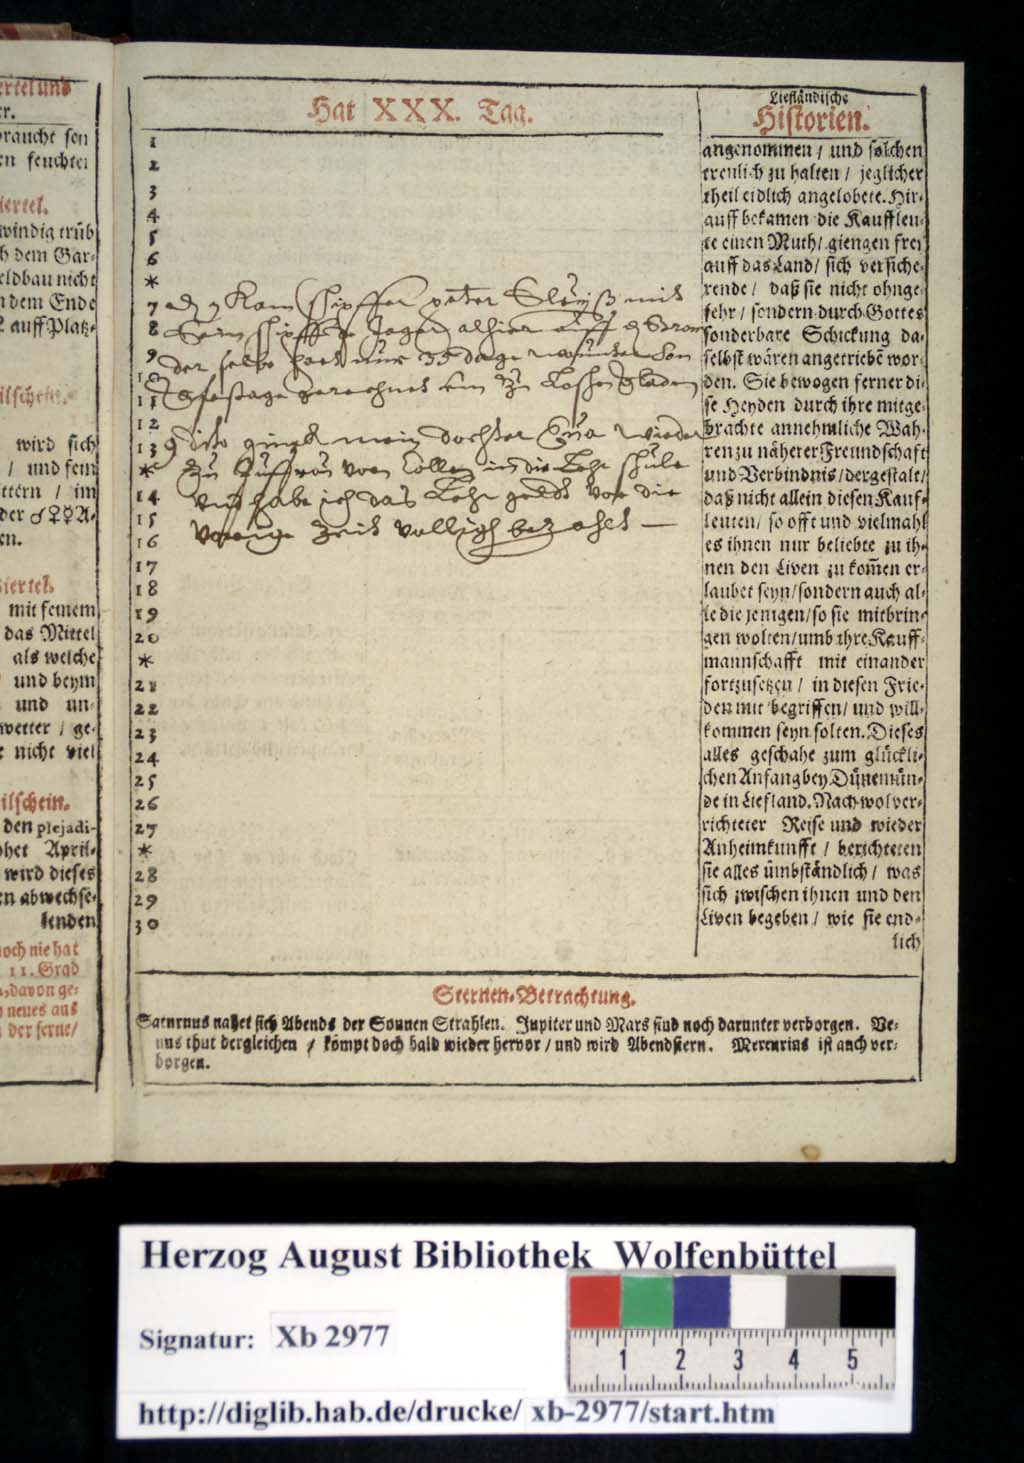 ertel und
er.
braucht sen
en feuchter
iertel.
windig trüb
h dem Gar-
eldbau nicht
n dem Ende
2 auff Platz-
ilschein.
wird sich
/ und fein
ttern / im
der ♂♀☿ A-
en.
iertel.
mit feinem
das Mittel
als welche
und beym
und un-
wetter / ge-
nicht viel
ilschein.
den plejadi-
het April-
wird dieses
en abwechse-
lenden
noch nie hat
11. Grad
davon ge-
neues aus
der ferne/
Hat XXX. Tag.
1
2
3
4
5
6
*
7
8
9
10
11
12
13
*
14
15
16
17
18
19
20
*
21
22
23
24
25
26
27
*
28
29
30
ad 7 Kam schipffer peter mit
Sein schipff alhier auff
der selbe hatt nur 35 dage
gerechnet
9 dito gingk mein dochter wieder
in die Lehr schule
und habe ich das Lehr geldt vor die
vorige Zeit vollig bezahlt —
Liefländische
Historien.
angenommen / und solchen
treulich zu halten / jeglicher
theil eidlich angelobete. Hir-
auff bekamen die Kauffleu-
te einen Muth / giengen frei
auff das Land / sich versiche-
rende / daß sie nicht ohnge-
fehr / sondern durch Gottes
sonderbare Schickung da-
selbst wären angetriebē wor-
den. Sie bewogen ferner di-
se Heyden durch ihre mitge-
brachte annehmliche Wah-
ren zu näherer Freundschaft
und Verbindnis / dergestalt /
daß nicht allein diesen Kauf-
leuten / so offt und vielmahl
es ihnen nur beliebte zu ih-
nen den Liven zu kom̄en er-
laubet seyn / sondern auch al-
le die jenigen / so sie mitbrin-
gen wolten / umb ihre Kauff-
mannschafft mit einander
fortzusetzen / in diesen Frie-
den mit begriffen / und will-
kommen seyn solten. Dieses
alles geschahe zum glückli-
chen Anfang bey Dünemün-
de in Liefland. Nach wol ver-
richteter Reise und wieder
Anheimkunfft / berichteten
sie alles ümbständlich / was
sich zwischen ihnen und den
Liven begeben / wie sie end-
lich
Sternen-Betrachtung.
Saturnus nahet sich Abends der Sonnen Strahlen. Jupiter und Mars sind noch darunter verborgen. Ve-
nus thut dergleichen / kömpt doch bald wieder hervor / und wird Abendstern. Mercurius ist auch ver-
borgen.
Herzog August Bibliothek Wolfenbüttel
Signatur: Xb 2977
1 2 3 4 5
http://diglib.hab.de/drucke/ xb-2977/start.htm